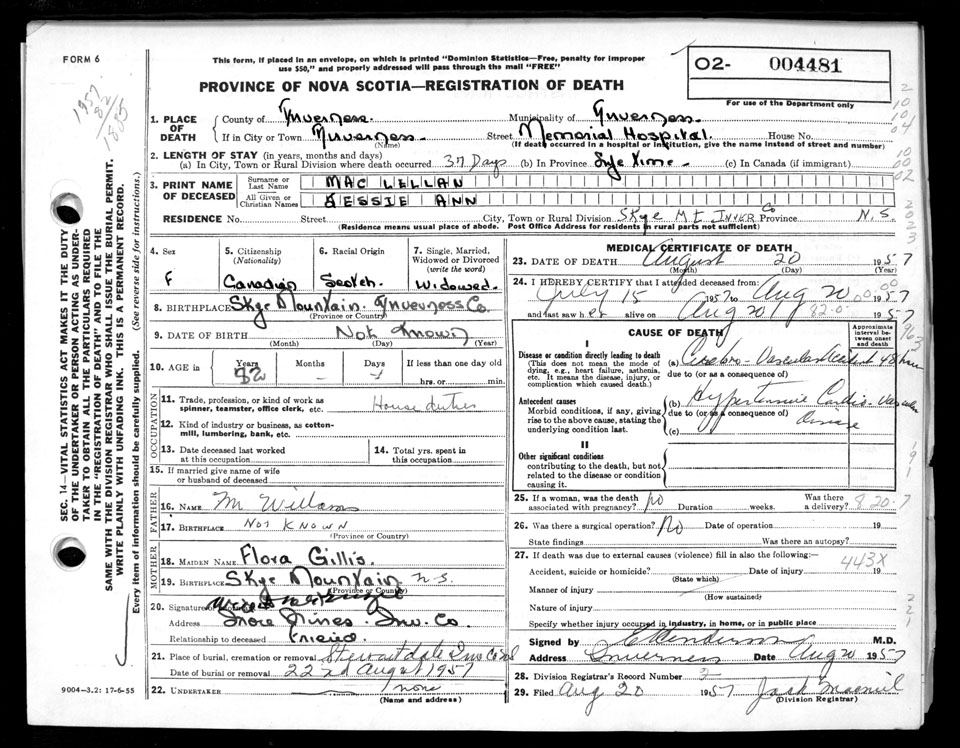 FORM 6
This form, if placed in an envelope, on which is printed "Dominion Statistics—Free, penalty for improper
use $50," and properly addressed will pass through the mail "FREE"
PROVINCE OF NOVA SCOTIA—REGISTRATION OF DEATH
O2- 004481
For use of the Department only
1957
82
1885
1. PLACE OF DEATH
County of Inverness. Municipality of Inverness.
If in City or Town Inverness. Street Memorial Hospital. House No.
(Name) (If death occurred in a hospital or institution, give the name instead of street and number)
2. LENGTH OF STAY (in years, months and days)
(a) In City, Town or Rural Division where death occurred 37 Days (b) In Province Life Time. (c) In Canada (if immigrant)
3. PRINT NAME OF DECEASED
Surname or Last Name MAC LELLAN
All Given or Christian Names JESSIE ANN
RESIDENCE No. Street City, Town or Rural Division SKye Mt INVER Co Province N.S.
(Residence means usual place of abode. Post Office Address for residents in rural parts not sufficient)
4. Sex
F
5. Citizenship (Nationality)
Canadian
6. Racial Origin
Scotch.
7. Single, Married, Widowed or Divorced (write the word)
Widowed.
8. BIRTHPLACE Skye Mountain. Inverness Co.
(Province or Country)
9. DATE OF BIRTH Not Known
(Month) (Day) (Year)
10. AGE in Years Months Days If less than one day old
82 hrs. or min.
OCCUPATION
11. Trade, profession, or kind of work as
spinner, teamster, office clerk, etc. House duties
12. Kind of industry or business, as cotton-
mill, lumbering, bank, etc.
13. Date deceased last worked
at this occupation
14. Total yrs. spent in
this occupation
15. If married give name of wife
or husband of deceased
FATHER
16. NAME
17. BIRTHPLACE NOT KNOWN
(Province or Country)
MOTHER
18. MAIDEN NAME Flora Gillis.
19. BIRTHPLACE Skye Mountain N.S.
(Province or Country)
20. Signature of
Address Inv. Co.
Relationship to deceased Friend
21. Place of burial, cremation or removal Stewartdale Inv Co NS
Date of burial or removal 22nd August 1957
22. UNDERTAKER none
(Name and address)
9004—3.2: 17-6-55
MEDICAL CERTIFICATE OF DEATH
23. DATE OF DEATH August 20 1957
(Month) (Day) (Year)
24. I HEREBY CERTIFY that I attended deceased from
July 15 1957 to Aug 20 1957
and last saw her alive on Aug 20 1957
CAUSE OF DEATH
Approximate interval between onset and death
I
Disease or condition directly leading to death
(This does not mean the mode of
dying, e.g., heart failure, asthenia,
etc. It means the disease, injury, or
complication which caused death.)
(a) Cerebro-Vascular Accident 48 hrs
due to (or as a consequence of)
Antecedent causes
Morbid conditions, if any, giving
rise to the above cause, stating the
underlying condition last.
(b) Hypertensive Cardio-Vascular
due to (or as a consequence of) Disease
(c)
II
Other significant conditions
contributing to the death, but not
related to the disease or condition
causing it.
25. If a woman, was the death
associated with pregnancy? No Duration weeks. Was there a delivery? 8 20 7
26. Was there a surgical operation? No Date of operation 19
State findings Was there an autopsy?
27. If death was due to external causes (violence) fill in also the following:—
443X
Accident, suicide or homicide? Date of injury 19
(State which)
Manner of injury
(How sustained)
Nature of injury
Specify whether injury occurred in industry, in home, or in public place
Signed by M.D.
Address Inverness Date Aug 20 1957
28. Division Registrar's Record Number
29. Filed Aug 20 1957 Jack
(Division Registrar)
SEC. 14—VITAL STATISTICS ACT MAKES IT THE DUTY
OF THE UNDERTAKER OR PERSON ACTING AS UNDER-
TAKER TO OBTAIN ALL THE PARTICULARS REQUIRED
IN THE "REGISTRATION OF DEATH" AND TO FILE THE
SAME WITH THE DIVISION REGISTRAR WHO SHALL ISSUE THE BURIAL PERMIT.
WRITE PLAINLY WITH UNFADING INK. THIS IS A PERMANENT RECORD.
Every item of information should be carefully supplied. (See reverse side for instructions.)